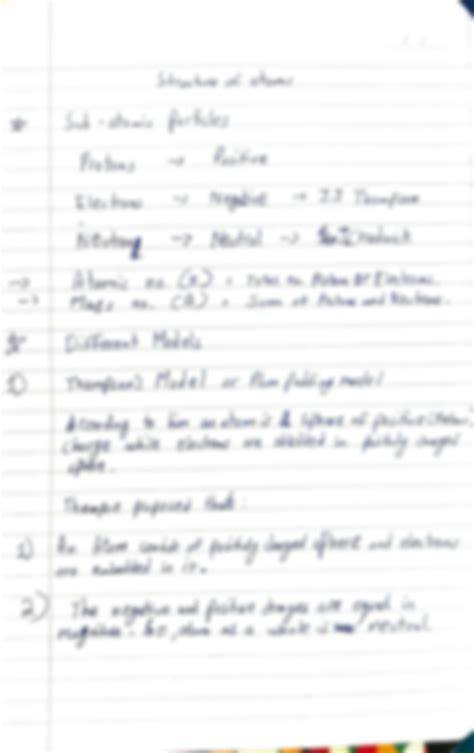 Structure of atoms
Sub-atomic particles
Protons → Positive
Electrons → Negative → J.J Thompson
Neutrons → Neutral →
→ Atomic no. (Z) = Total no. Protons Or Electrons.
→ Mass no. (A) = Sum of Protons and Neutrons.
Different Models
1) Thompson's Model or Plum pudding model
According to him an atom is a sphere of positive
charge while electrons are in charged
space.
Thompson proposed that:
1) An Atom consist of positively charged sphere and electrons
are embedded in it.
2) The negative and positive charges are equal in
magnitude. So, atom as a whole is neutral.